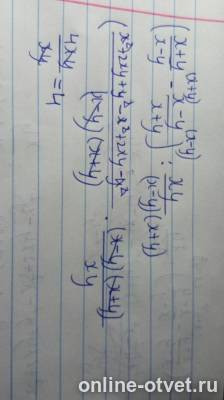 (x+y)
(x-y)
( x+y / x-y - x-y / x+y ) : xy / (x-y)(x+y)
( x²+2xy+y²-x²+2xy-y² / (x-y)(x+y) ) · (x-y)(x+y) / xy
4xy / xy = 4
online-otvet.ru